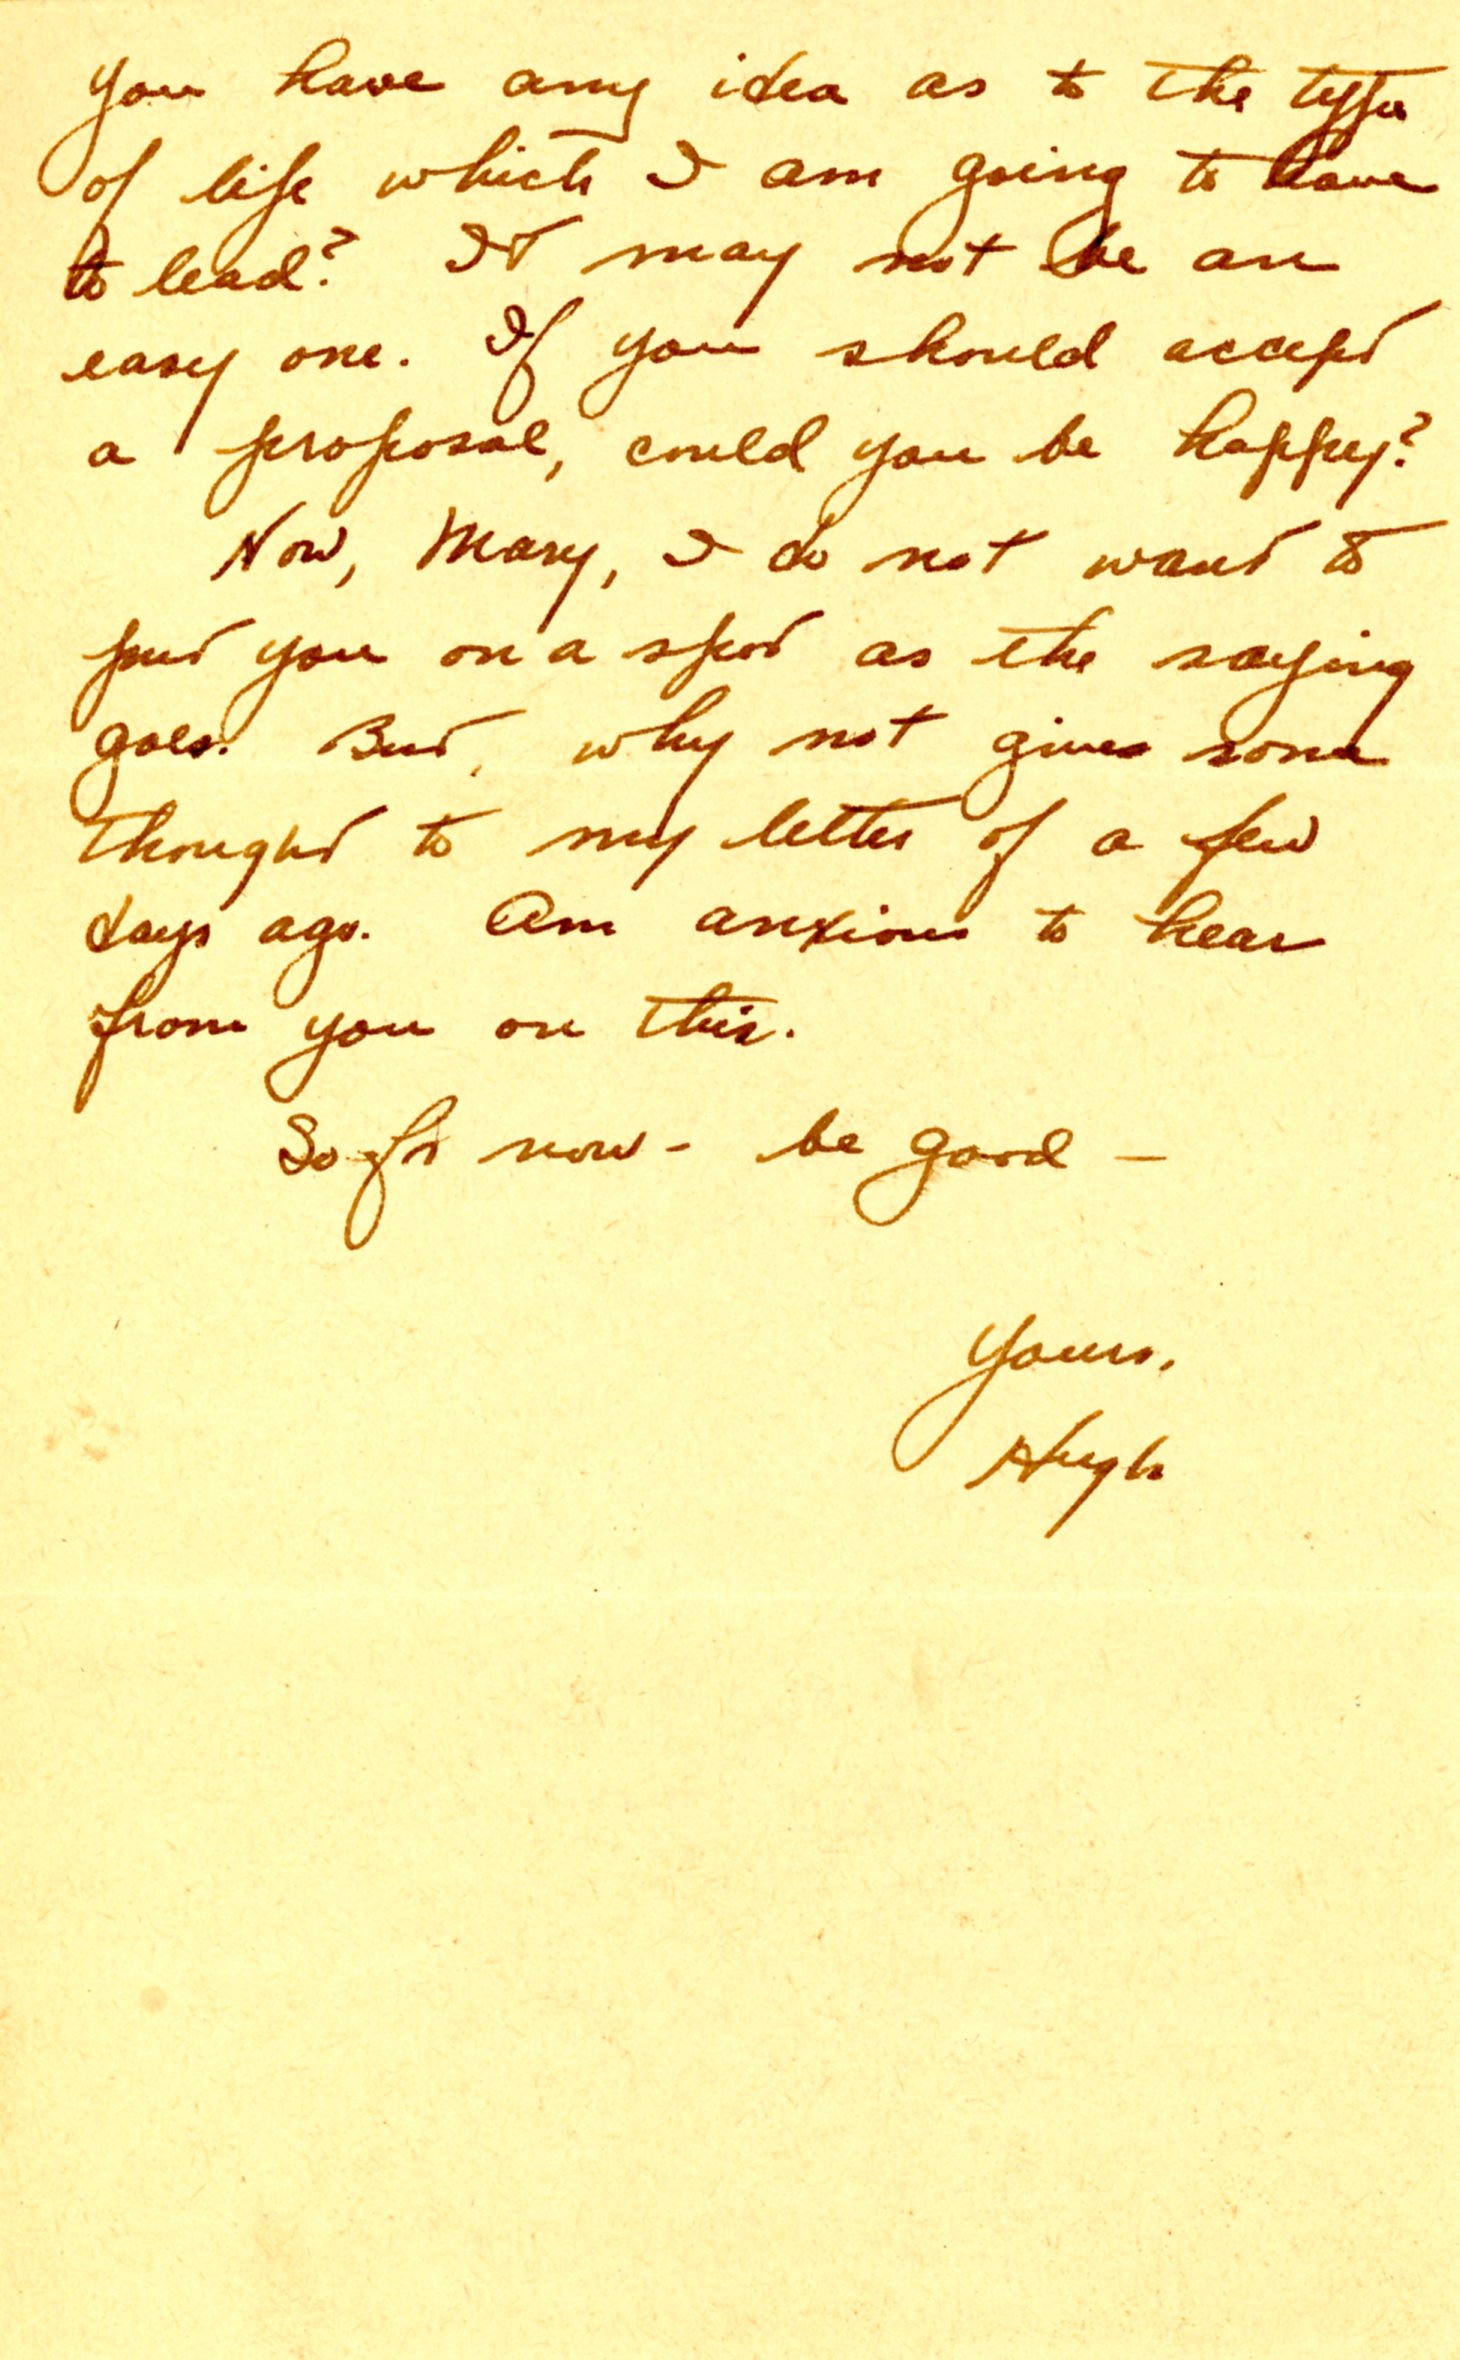 you have any idea as to the type
of life which I am going to have
to lead? It may not be an
easy one. If you should accept
a proposal, could you be happy?
Now, Mary, I do not want to
put you on a spot as the saying
goes. But, why not give some
thought to my letter of a few
days ago. Am anxious to hear
from you on this.
So for now - be good -
Yours,
Hugh